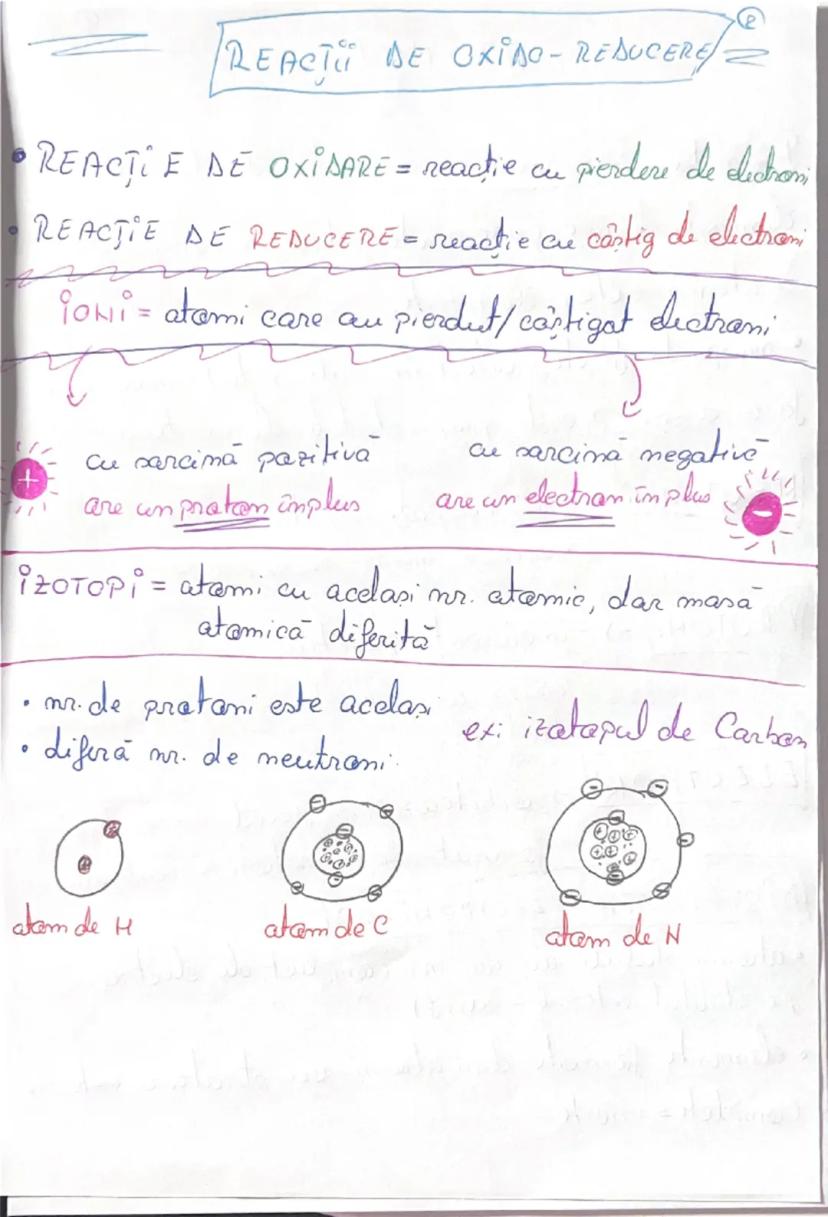 2
REACȚII DE OXIDO-REDUCERE
• REACȚIE DE OXIDARE = reacție cu pierdere de electroni
• REACȚIE DE REDUCERE = reacție cu câștig de electroni
IONI = atomi care au pierdut/câștigat electroni
cu sarcină pozitivă
cu sarcină negativă
+
are un proton în plus
are un electron în plus
-
IZOTOPI = atomi cu același nr. atomic, dar masă
atomică diferită
• nr. de protoni este același
ex: izotopul de Carbon
• diferă nr. de neutroni.
atom de H
atom de C
atom de N